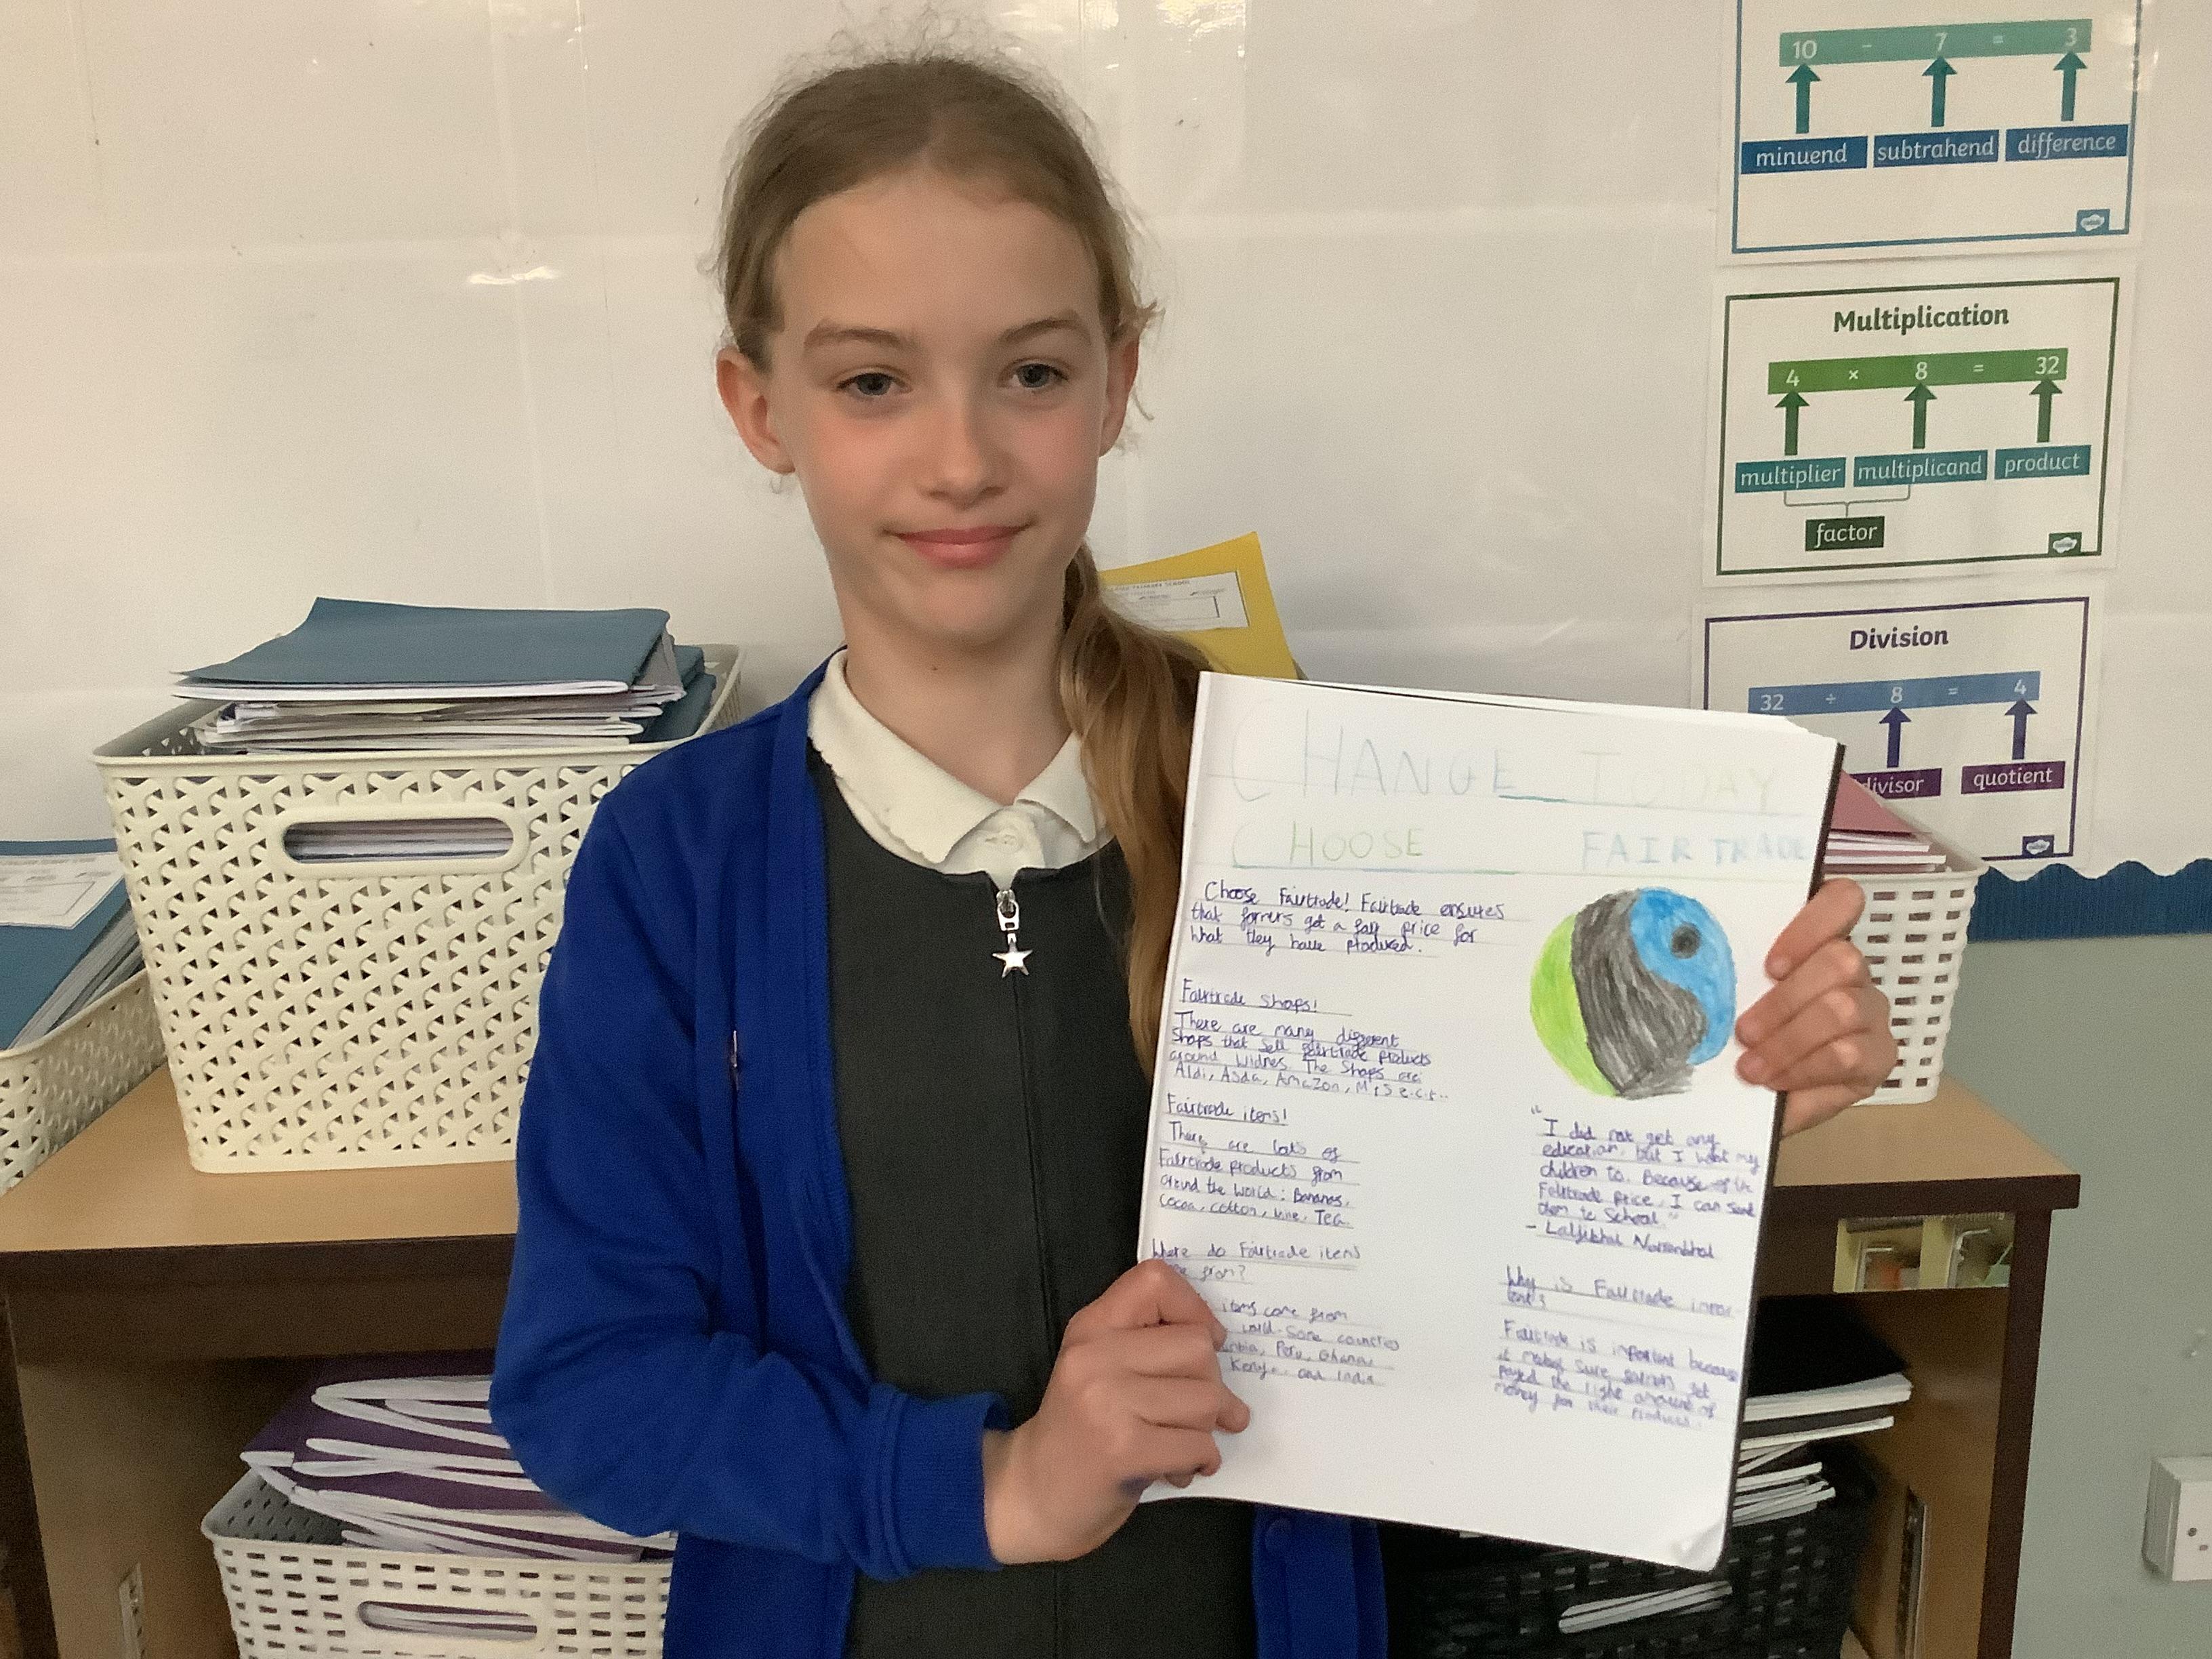 CHANGE TODAY
CHOOSE FAIRTRADE
Choose Fairtrade! Fairtrade ensures
that farmers get a fair price for
what they have produced.
Fairtrade Shops!
There are many different
Shops that sell fairtrade products
around Widnes. The Shops are
Aldi, Asda, Amazon, M&S e.c.t..
Fairtrade items!
There are lots of
Fairtrade products from
around the world: Bananas,
Cocoa, cotton, wine, Tea.
Where do Fairtrade items
from?
items come from
world. Some countries
Peru, Ghana,
Kenya, and India
"I did not get any
education, but I want my
children to. Because of the
Fairtrade price, I can send
them to School."
Why is Fairtrade
Fairtrade is important because
it makes sure farmers get
payed the right amount of
money for their products.
10 - 7 = 3
minuend subtrahend difference
Multiplication
4 × 8 = 32
multiplier multiplicand product
factor
Division
32 ÷ 8 = 4
divisor quotient